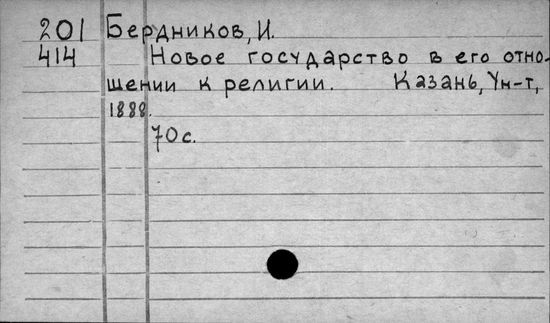 201 Бердников, И.
414 Новое государство в его отно-
шении к религии. Казань, Ун-т,
1888.
70 с.